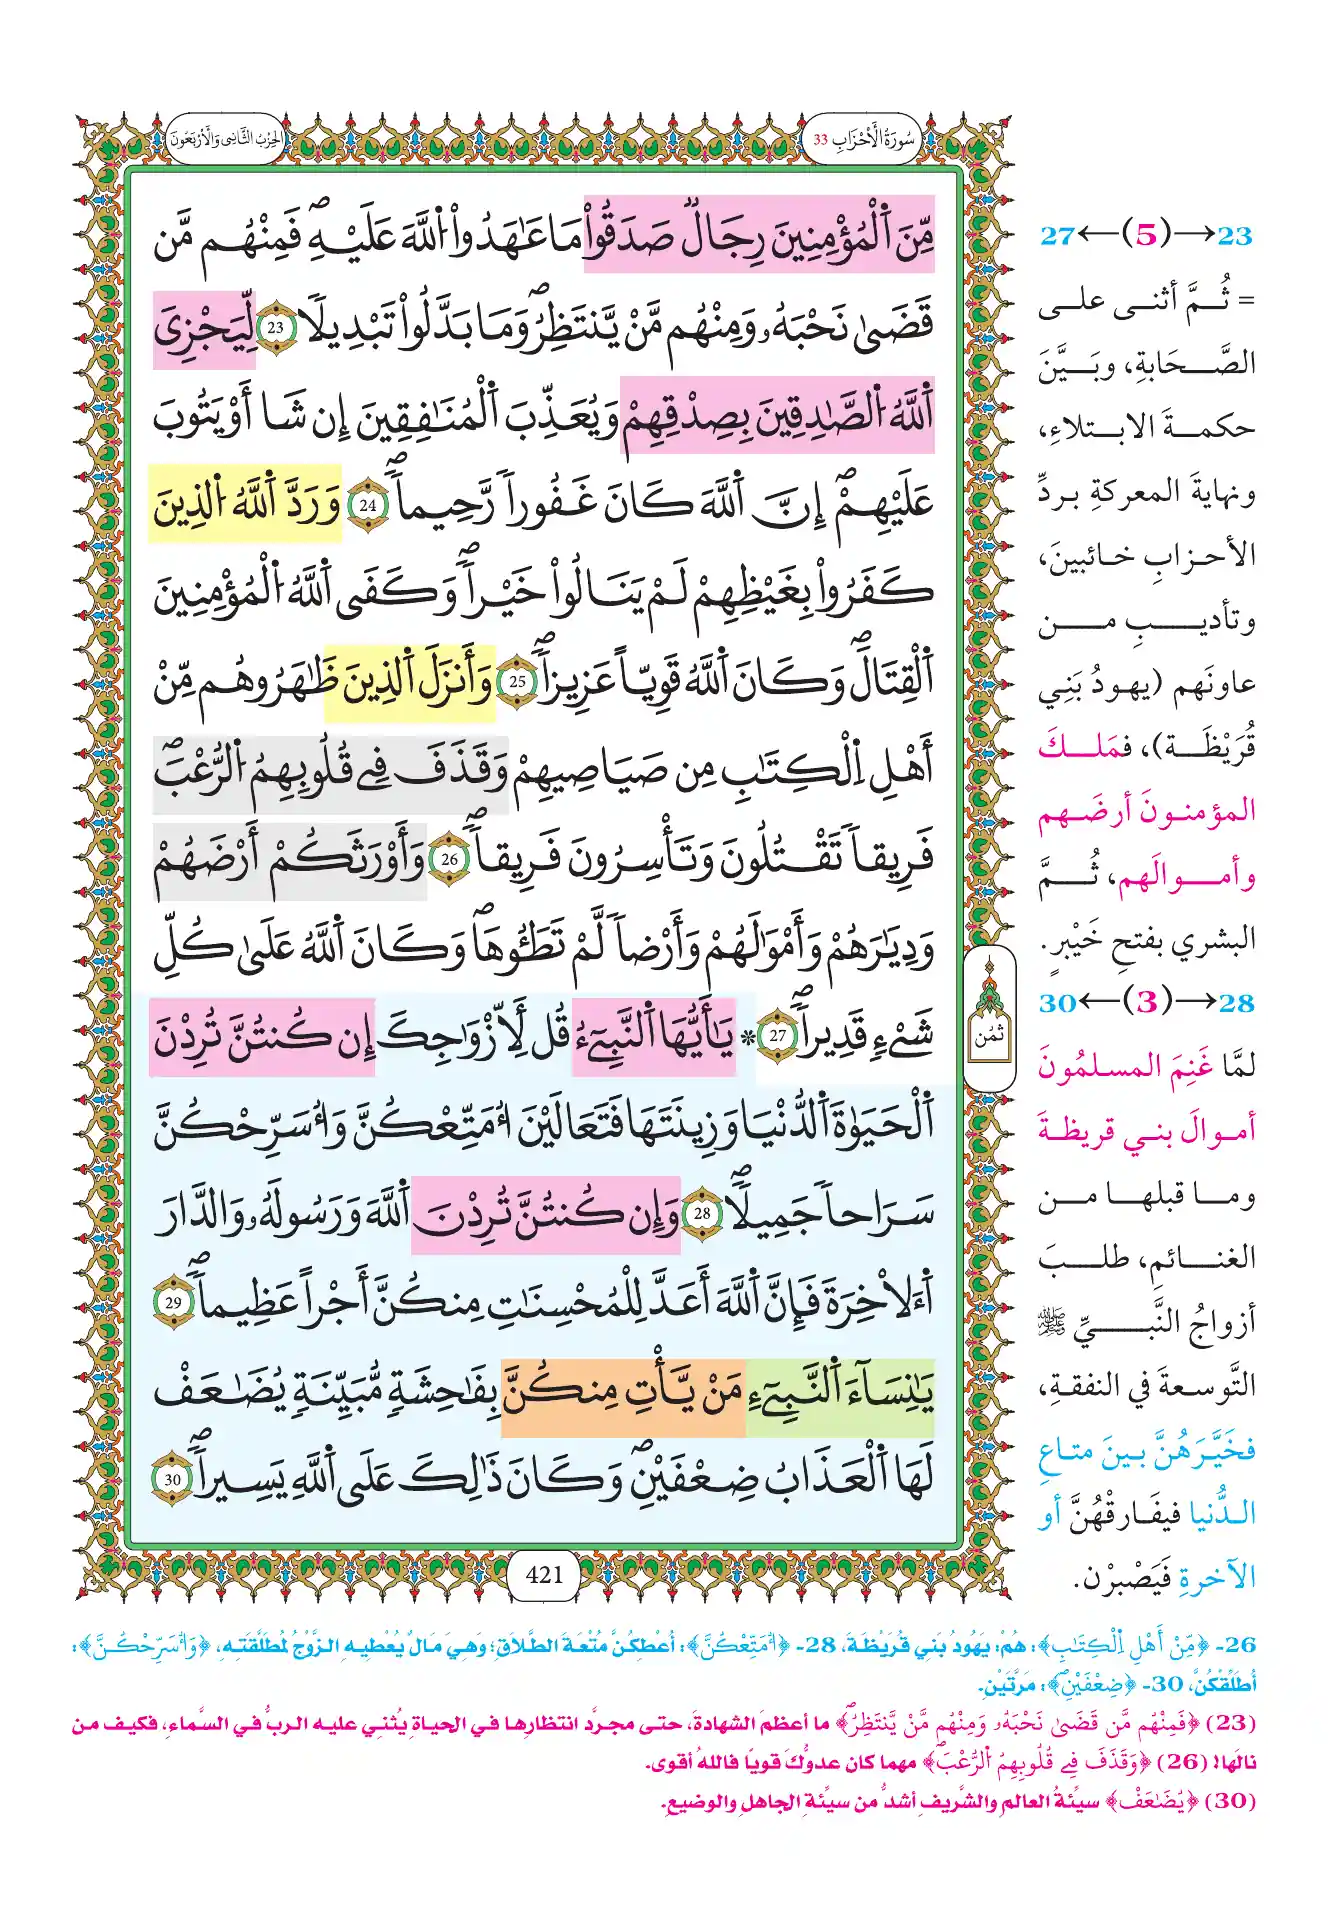 سُورَةُ الْأَحْزَابِ 33
الحِزْبُ الثَّانِي وَالْأَرْبَعُونَ
مِّنَ اَ۬لْمُؤْمِنِينَ رِجَالٞ صَدَقُواْ مَا عَٰهَدُواْ اُ۬للَّهَ عَلَيْهِۖ فَمِنْهُم مَّن
قَضَىٰ نَحْبَهُۥ وَمِنْهُم مَّنْ يَّنتَظِرُۖ وَمَا بَدَّلُواْ تَبْدِيلاٗ 23 لِّيَجْزِيَ
اَ۬للَّهُ اُ۬لصَّٰدِقِينَ بِصِدْقِهِمْ وَيُعَذِّبَ اَ۬لْمُنَٰفِقِينَ إِن شَا أَوْ يَتُوبَ
عَلَيْهِمْۖ إِنَّ اَ۬للَّهَ كَانَ غَفُوراٗ رَّحِيماٗۖ 24 وَرَدَّ اَ۬للَّهُ اُ۬لذِينَ
كَفَرُواْ بِغَيْظِهِمْ لَمْ يَنَالُواْ خَيْراٗۖ وَكَفَى اَ۬للَّهُ اُ۬لْمُؤْمِنِينَ
اَ۬لْقِتَالَۖ وَكَانَ اَ۬للَّهُ قَوِيّاً عَزِيزاٗۖ 25 وَأَنزَلَ اَ۬لذِينَ ظَٰهَرُوهُم مِّنْ
أَهْلِ اِ۬لْكِتَٰبِ مِن صَيَاصِيهِمْ وَقَذَفَ فِے قُلُوبِهِمُ اُ۬لرُّعْبَۖ
فَرِيقاٗ تَقْتُلُونَ وَتَأْسِرُونَ فَرِيقاٗۖ 26 وَأَوْرَثَكُمْ أَرْضَهُمْ
وَدِيَٰرَهُمْ وَأَمْوَٰلَهُمْ وَأَرْضاٗ لَّمْ تَطَـُٔوهَاۖ وَكَانَ اَ۬للَّهُ عَلَىٰ كُلِّ
شَےْءٖ قَدِيراٗۖ 27 * يَٰأَيُّهَا اَ۬لنَّبِيٓءُ قُل لِّأَزْوَٰجِكَ إِن كُنتُنَّ تُرِدْنَ
اَ۬لْحَيَوٰةَ اَ۬لدُّنْيَا وَزِينَتَهَا فَتَعَالَيْنَ أُمَتِّعْكُنَّ وَأُسَرِّحْكُنَّ
سَرَاحاٗ جَمِيلاٗۖ 28 وَإِن كُنتُنَّ تُرِدْنَ اَ۬للَّهَ وَرَسُولَهُۥ وَالدَّارَ
اَ۬لْأٓخِرَةَ فَإِنَّ اَ۬للَّهَ أَعَدَّ لِلْمُحْسِنَٰتِ مِنكُنَّ أَجْراً عَظِيماٗۖ 29
يَٰنِسَآءَ اَ۬لنَّبِيٓءِ مَنْ يَّأْتِ مِنكُنَّ بِفَٰحِشَةٖ مُّبَيِّنَةٖ يُضَٰعَفْ
لَهَا اَ۬لْعَذَابُ ضِعْفَيْنِۖ وَكَانَ ذَٰلِكَ عَلَى اَ۬للَّهِ يَسِيراٗۖ 30
ثُمُن
421
23→(5)←27
= ثُمَّ أثنى على
الصَّحَابةِ، وبَيَّنَ
حكمةَ الابتلاءِ،
ونهايةَ المعركةِ بردِّ
الأحزابِ خائبينَ،
وتأديبِ من
عاونَهم (يهودُ بَنِي
قُرَيْظَة)، فمَلكَ
المؤمنونَ أرضَهم
وأموالَهم، ثُمَّ
البشري بفتحِ خَيْبرٍ.
28→(3)←30
لمَّا غَنِمَ المسلمُونَ
أموالَ بني قريظةَ
وما قبلها من
الغنائمِ، طلبَ
أزواجُ النَّبيِّ ﷺ
التَّوسعةَ في النفقةِ،
فخَيَّرَهُنَّ بينَ متاعِ
الدُّنيا فيفَارقْهُنَّ أو
الآخرةِ فَيَصْبرْن.
26- ﴿مِّنْ أَهْلِ اِ۬لْكِتَٰبِ﴾: هُمْ: يَهُودُ بَنِي قُرَيْظَةَ، 28- ﴿أُمَتِّعْكُنَّ﴾: أُعْطِكُنَّ مُتْعَةَ الطَّلَاقِ؛ وَهِيَ مَالٌ يُعْطِيهِ الزَّوْجُ لِمُطَلَّقَتِهِ، ﴿وَأُسَرِّحْكُنَّ﴾:
أُطَلِّقْكُنَّ، 30- ﴿ضِعْفَيْنِۖ﴾: مَرَّتَيْنِ.
(23) ﴿فَمِنْهُم مَّن قَضَىٰ نَحْبَهُۥ وَمِنْهُم مَّنْ يَّنتَظِرُۖ﴾ ما أعظمَ الشهادةَ، حتى مجرَّد انتظارِها في الحياةِ يُثني عليه الربُّ في السَّماءِ، فكيف من
نالَها! (26) ﴿وَقَذَفَ فِے قُلُوبِهِمُ اُ۬لرُّعْبَۖ﴾ مهما كان عدوُّكَ قويًا فاللهُ أقوى.
(30) ﴿يُضَٰعَفْ﴾ سيِّئةُ العالمِ والشَّريفِ أشدُّ من سيِّئةِ الجاهلِ والوضيعِ.